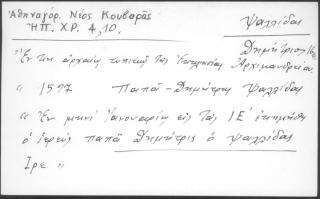 Ἀθηναγόρ. Νέος Κουβαρᾶς
ἨΠ. ΧΡ. 4, 10.
Ψαλλίδας
Δημήτριος
"Ἐν τῷ ἀρχαίῳ τυπικῷ τῆς Ἀρχιμανδρείου,
" 1597 Παπᾶ-Δημήτρης Ψαλλίδας
" Ἐν μηνὶ Ἰανουαρίῳ εἰς τὰς ΙΕ΄ ἐκοιμήθη
ὁ ἱερεὺς παπᾶ Δημήτρις ὁ ψαλλίδας